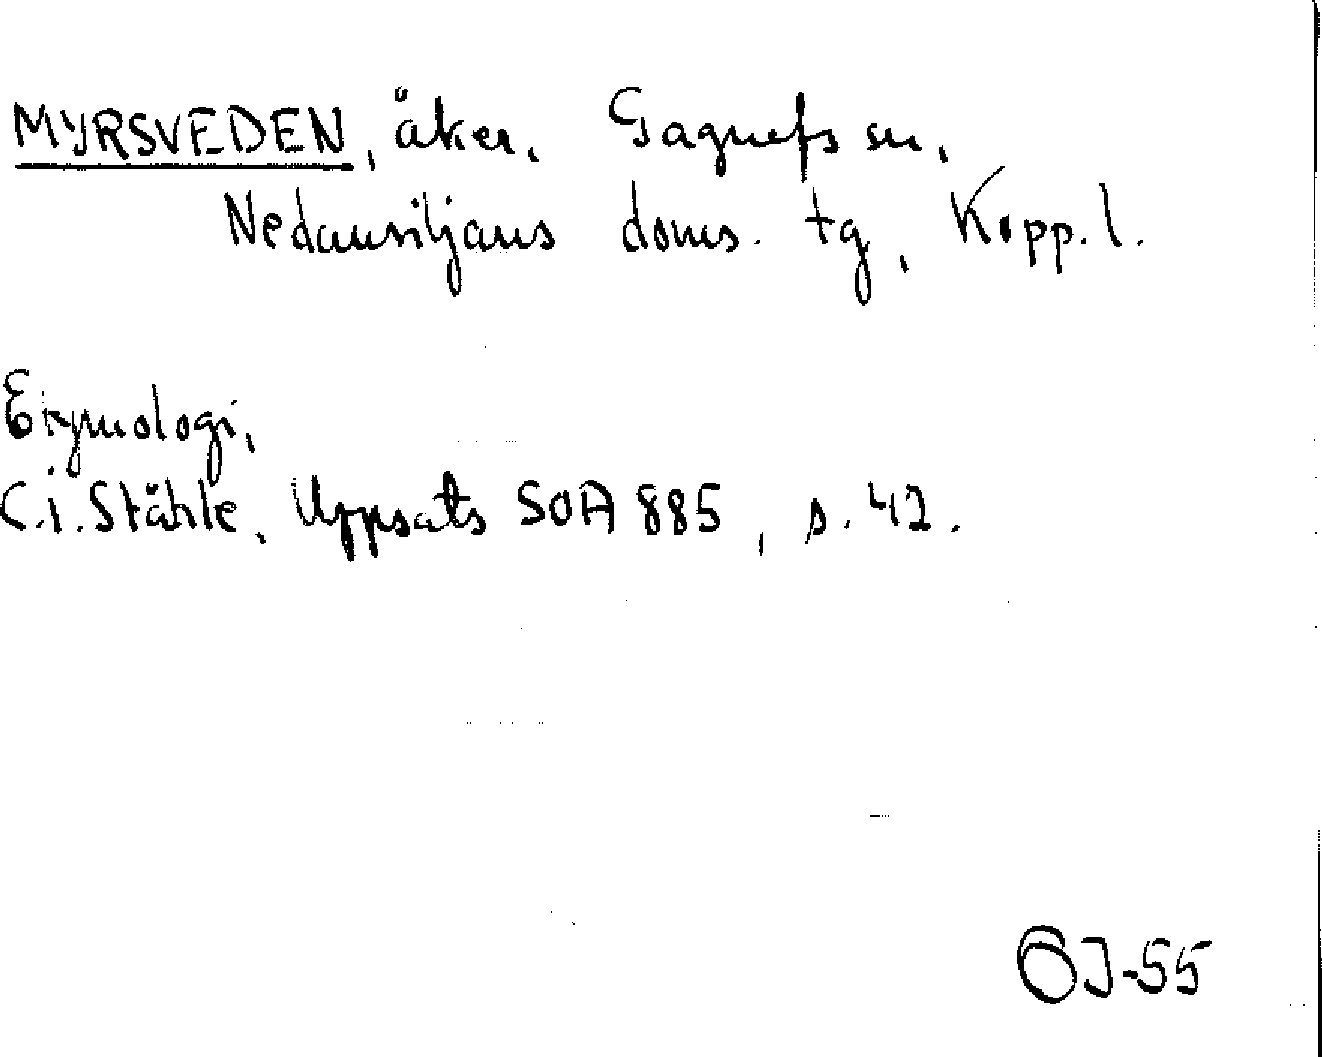 MYRSVEDEN, åker. Gagnefs sn,
Nedansiljans doms. tg, Kopp. l.
Etymologi,
C.I. Ståhle, Uppsats SOA 885, s. 42.
ÖJ-55